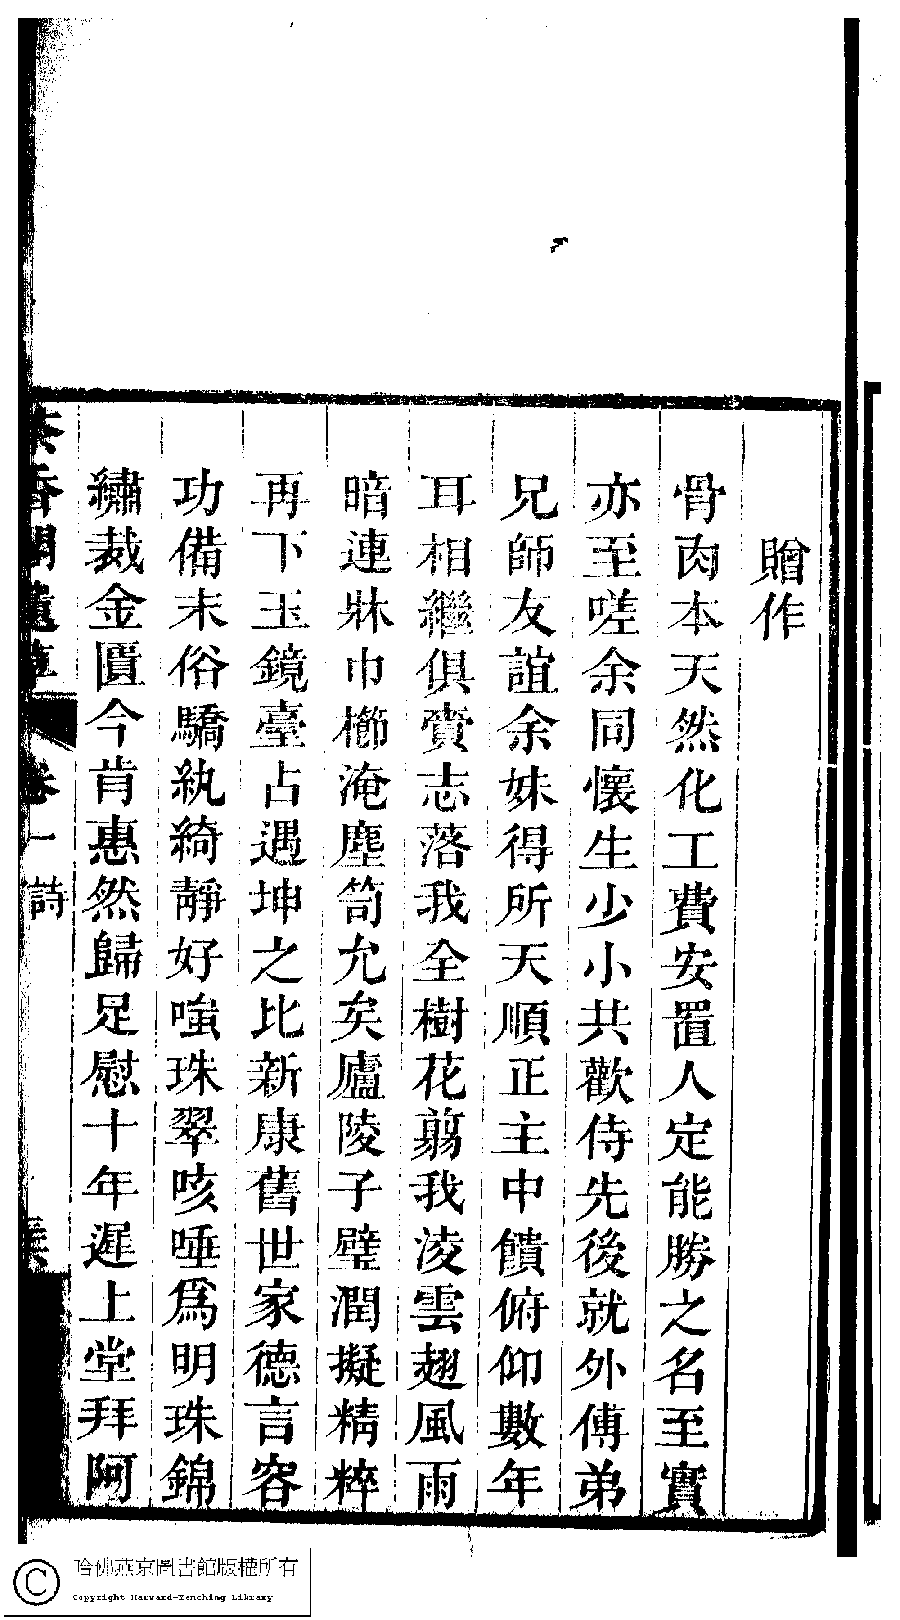 贈作
骨肉本天然化工費安置人定能勝之名至實
亦至嗟余同懷生少小共歡侍先後就外傅弟
兄師友誼余妹得所天順正主中饋俯仰數年
耳相繼俱賫志落我全樹花翦我淩雲翅風雨
暗連牀巾櫛淹塵笥允矣廬陵子璧潤擬精粹
再下玉鏡臺占遇坤之比新康舊世家德言容
功備未俗驕紈綺靜好嗤珠翠咳唾爲明珠錦
繡裁金匱今肯惠然歸足慰十年遲上堂拜阿
卷一 詩
哈佛燕京圖書館版權所有
Copyright Harvard-Yenching Library